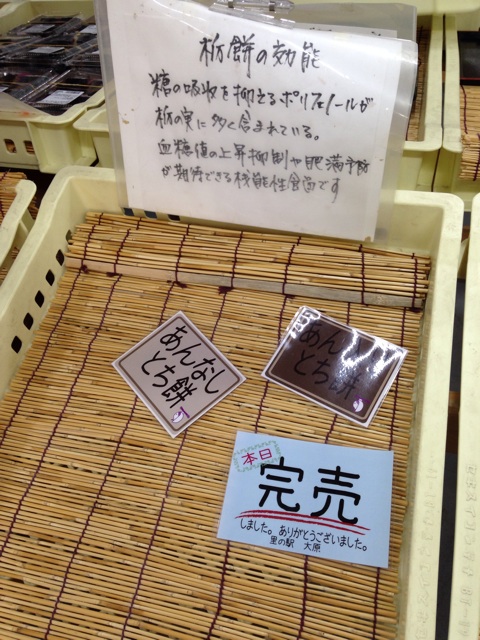 栃餅の効能
糖の吸収を抑えるポリフェノールが
栃の実に多く含まれている。
血糖値の上昇抑制や肥満予防
が期待できる機能性食品です
あんなし
とち餅
あん
とち餅
本日
完売
しました。ありがとうございました。
里の駅 大原